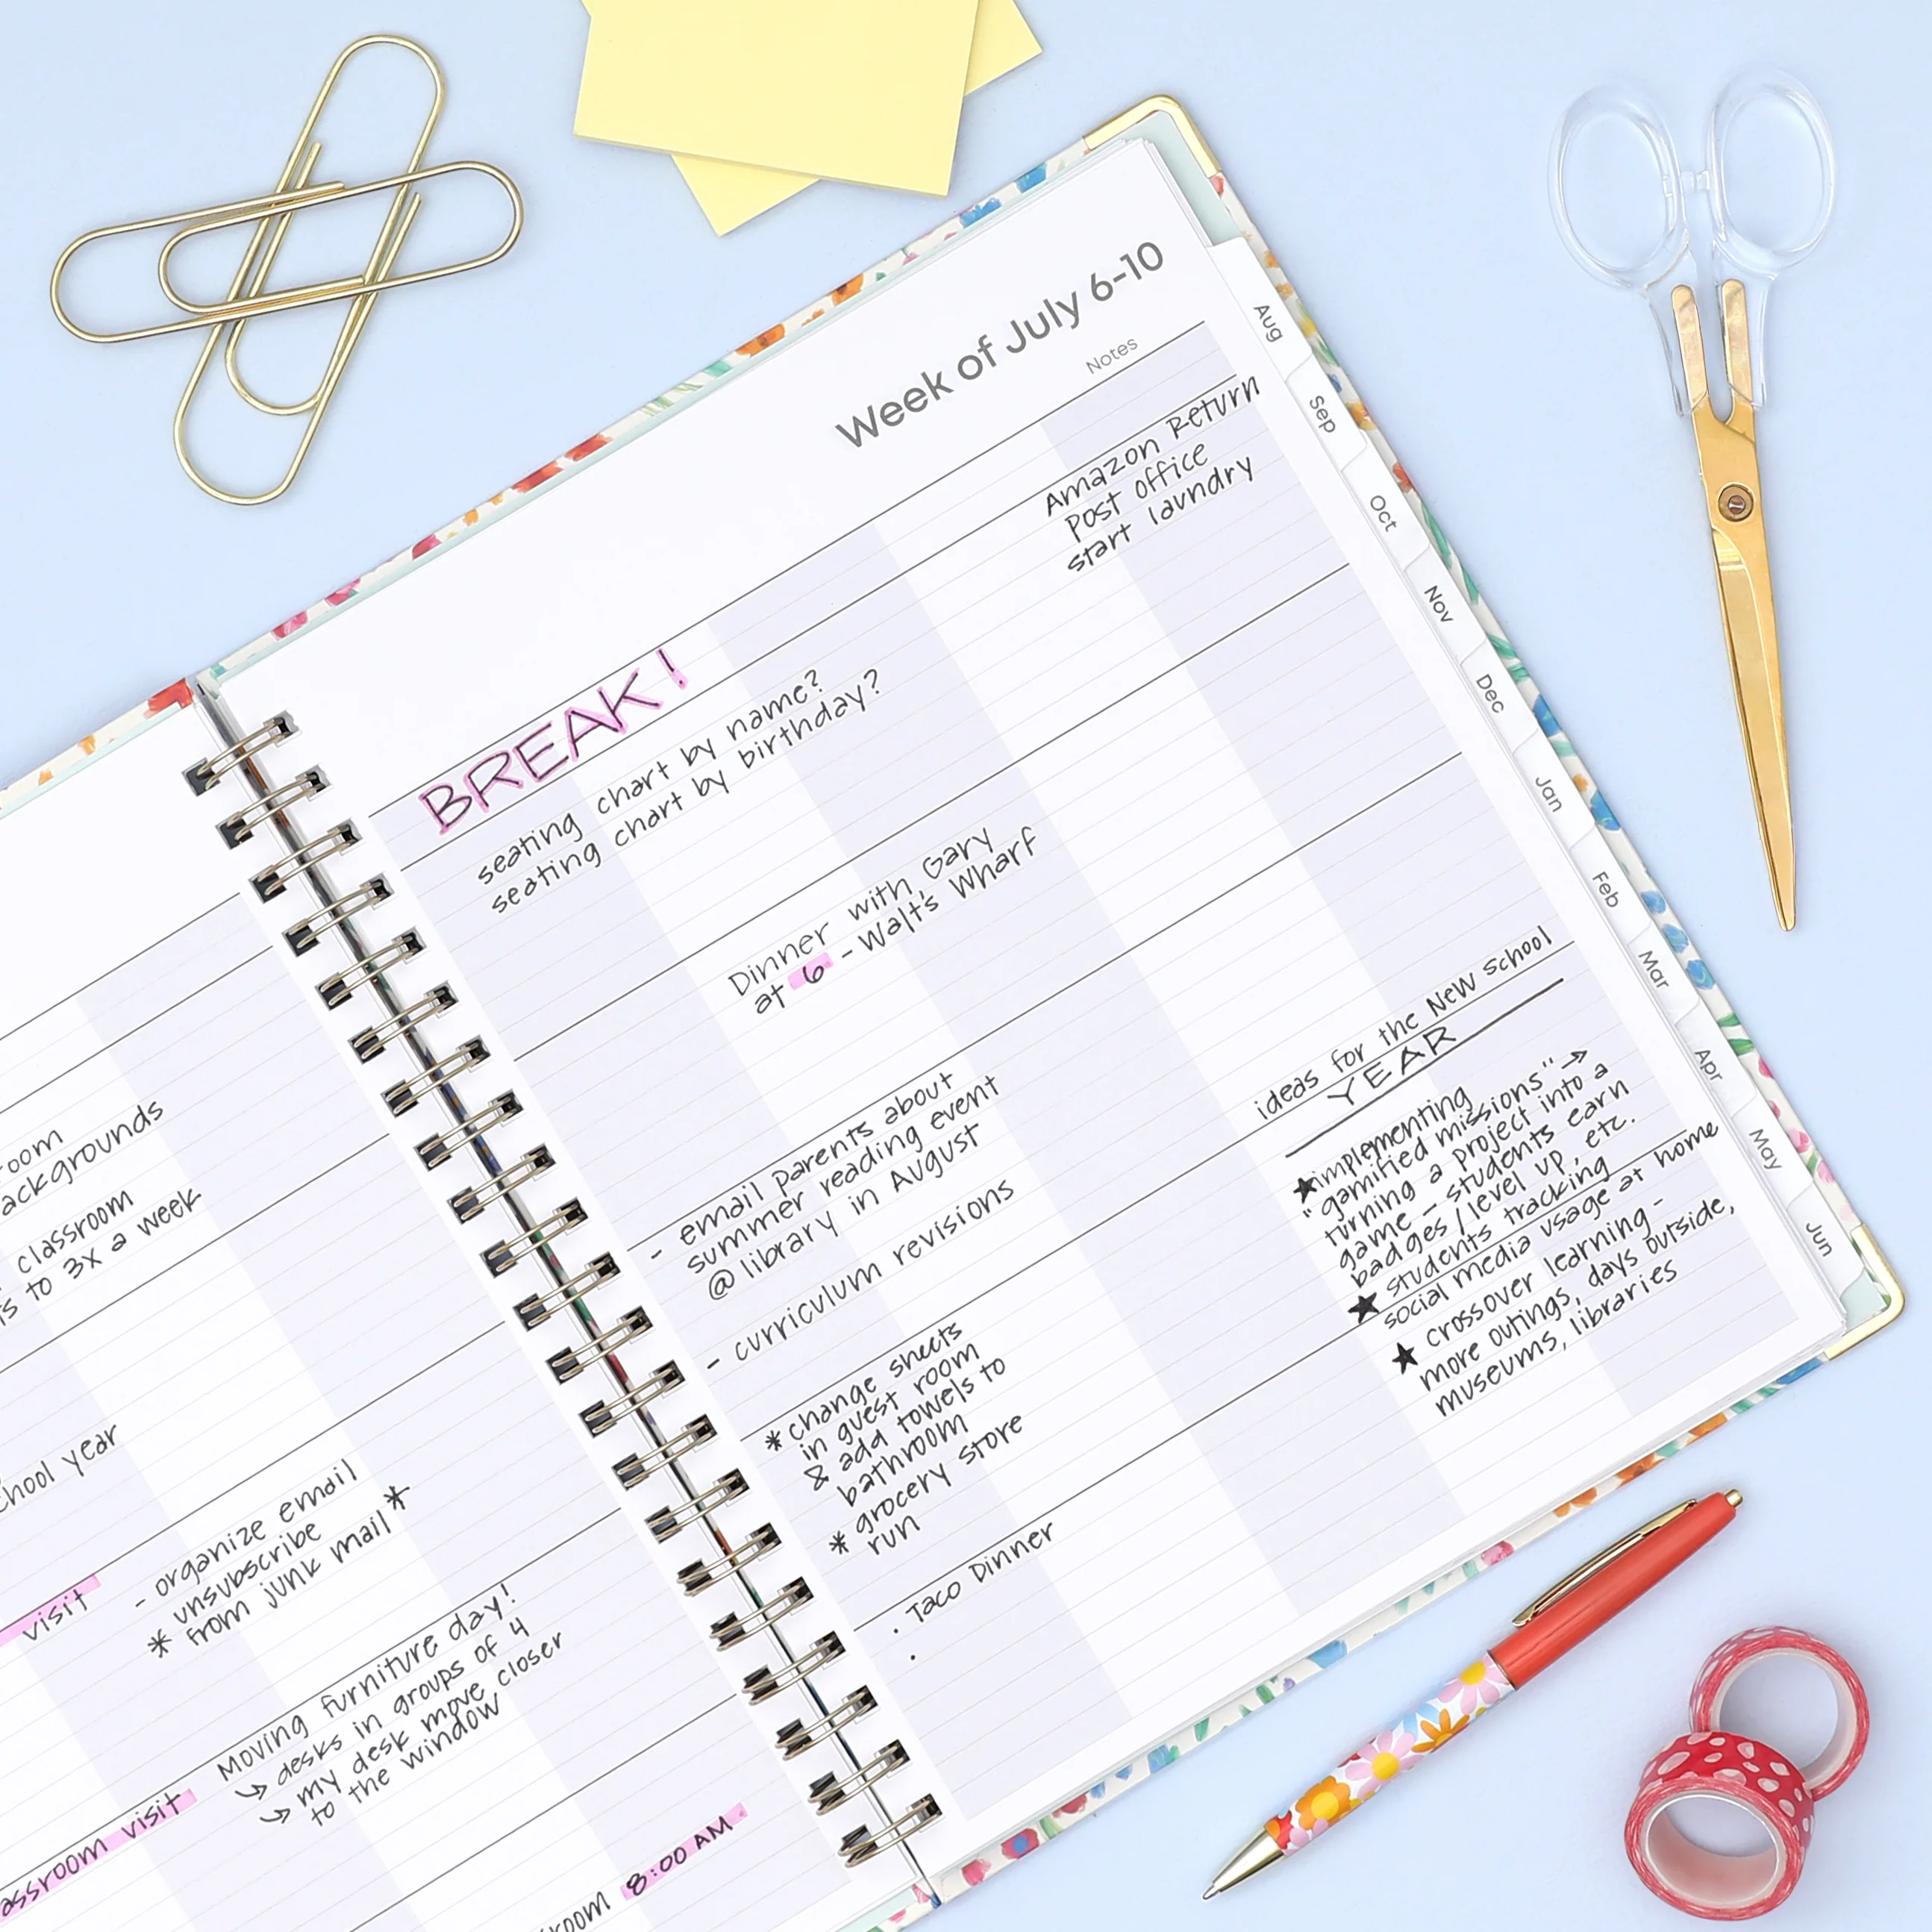 Week of July 6-10
Notes
BREAK!
Amazon Return
post office
start laundry
seating chart by name?
seating chart by birthday?
Dinner with Gary
at 6 - Walt's Wharf
- email parents about
summer reading event
@ library in August
- curriculum revisions
* change sheets
in guest room
& add towels to
bathroom
* grocery store
run
. Taco Dinner
.
ideas for the New School
YEAR
★implementing
"gamified missions" →
turning a project into a
game - students earn
badges / level up, etc.
★ students tracking
social media usage at home
★ crossover learning -
more outings, days outside,
museums, libraries
Aug
Sep
Oct
Nov
Dec
Jan
Feb
Mar
Apr
May
Jun
classroom
to 3x a week
year
visit
- organize email
unsubscribe
* from junk mail *
visit
Moving furniture day!
↳ desks in groups of 4
↳ my desk move closer
to the window
8:00 AM